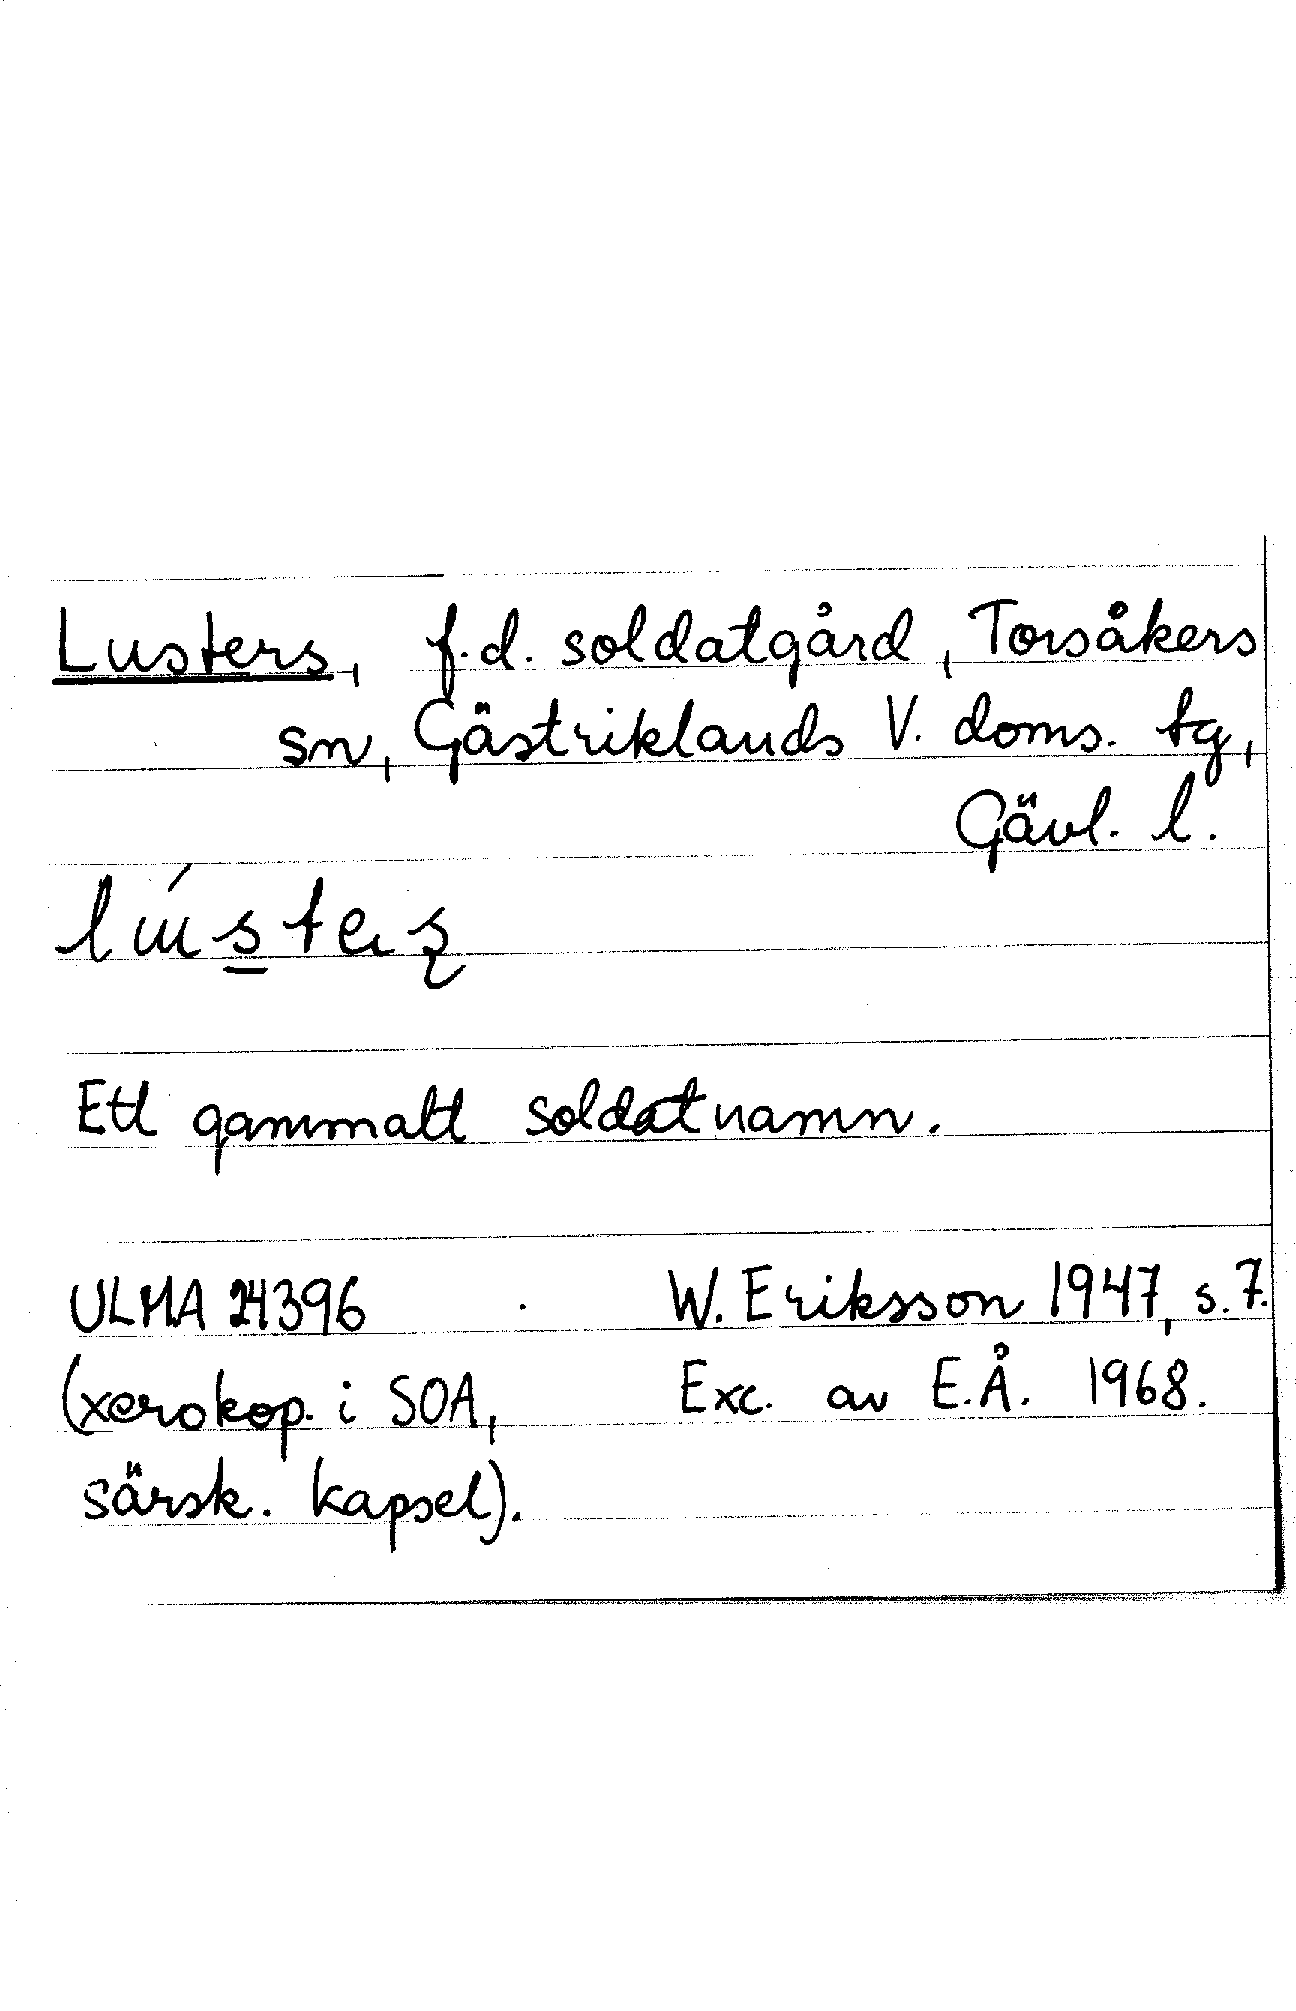 Lusters, f.d. soldatgård, Torsåkers
sn, Gästriklands V. doms. tg,
Gävl. l.
Ett gammalt soldatnamn.
ULMA 24396 W. Eriksson 1947, s. 7.
(xerokop. i SOA, Exc. av E.Å. 1968.
särsk. kapsel).